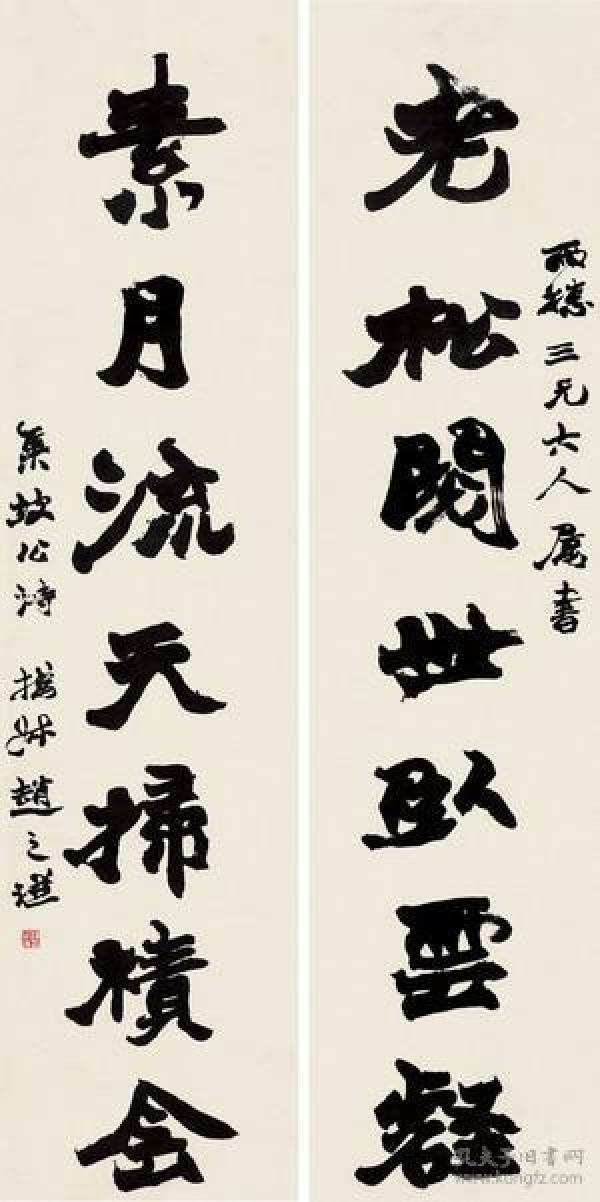 西穗三兄大人屬書
老松閱世臥雲壑
素月流天掃積侌
集坡公詩 撝叔趙之謙
孔夫子旧書网
www.kongfz.com